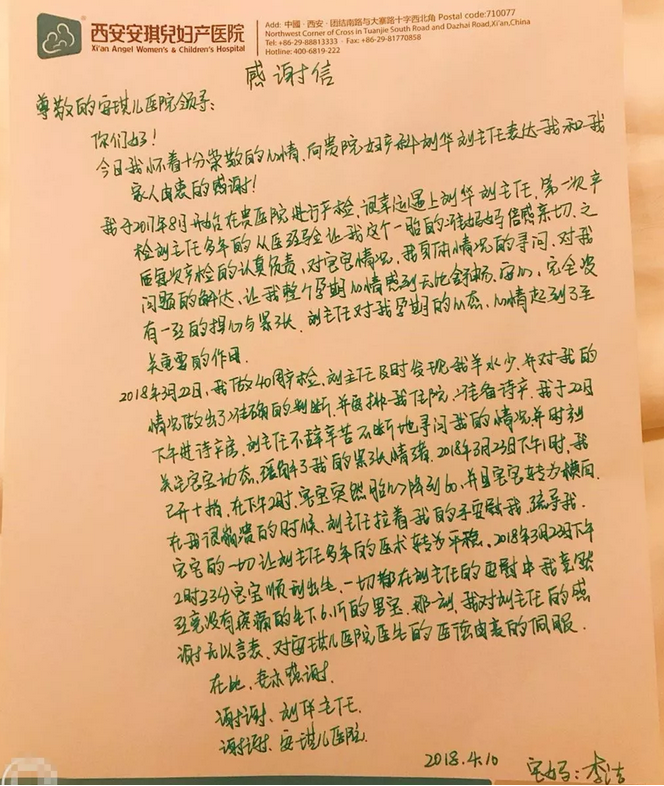 西安安琪兒妇产医院
Xi'an Angel Women's & Children's Hospital
Add: 中國·西安·团结南路与大寨路十字西北角 Postal code:710077
Northwest Corner of Cross in Tuanjie South Road and Dazhai Road,Xi'an,China
Tel:+86-29-88813333 Fax:+86-29-81770858
Hotline: 400-6819-222
感谢信
尊敬的安琪儿医院领导：
你们好！
今日我怀着十分崇敬的心情，向贵院妇产科刘华刘主任表达我和我
家人由衷的感谢！
我于2017年8月开始在贵医院进行产检，很幸运遇上刘华刘主任，第一次产
检刘主任多年的从医经验让我这个一胎的准妈妈倍感亲切，之
后每次产检的认真负责，对宝宝情况，我身体情况的寻问，对我
问题的解达，让我整个孕期心情感到无比舒畅，安心，完全没
有一丝的担心与紧张。刘主任对我孕期的心态，心情起到了至
关重要的作用。
2018年3月22日，我做40周产检，刘主任及时发现我羊水少，并对我的
情况做出了准确的判断，并安排我住院，准备诗产，我于22日
下午进诗产房，刘主任不辞辛苦不断地寻问我的情况并时刻
关注宝宝动态，缓解了我的紧张情绪。2018年3月23日下午1时，我
已开十指，在下午2时，宝宝突然胎心降到60，并且宝宝转为横向，
在我很崩溃的时候，刘主任拉着我的手安慰我，疏导我。
宝宝的一切让刘主任多年的医术转为平稳。2018年3月23日下午
2时33分宝宝顺利出生，一切都在刘主任的安慰中我竟然
丝毫没有疼痛的生下6.1斤的男宝，那一刻，我对刘主任的感
谢无以言表，对安琪儿医院医生的医德由衷的佩服。
在此，表示感谢。
谢谢，刘华主任。
谢谢，安琪儿医院
2018.4.10 宝妈：李洁